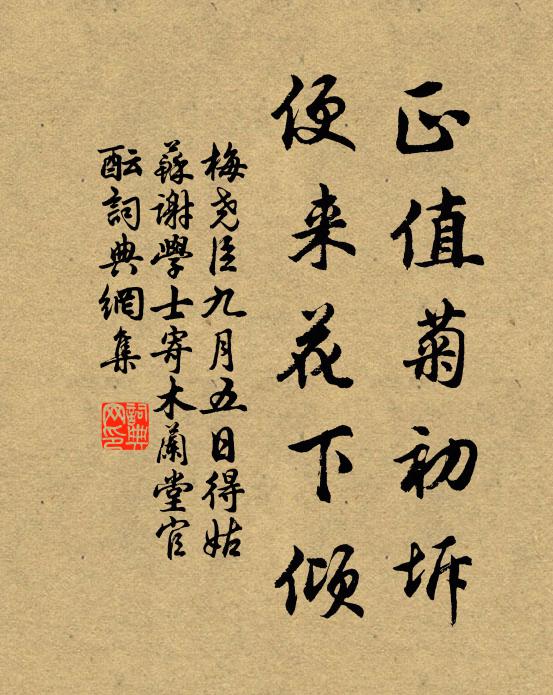 正值菊初坼
便来花下倾
梅尧臣九月五日得姑
蘇謝學士寄木蘭堂官
酝詞典網集
詞典网印